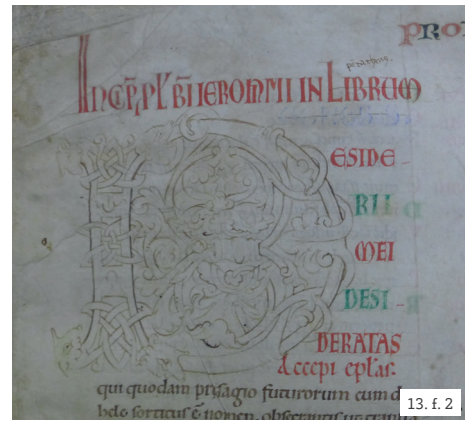 PRO
INCP̄ PL̄ BĪ IERONIMI IN LIBRUM
D
ESIDE-
RII
MEI
DESI-
DERATAS
Accepi epl̄as.
qui quodam presagio futurorum cum d
hele sortitus ē nomen. obsecrantis ut
13. f. 2